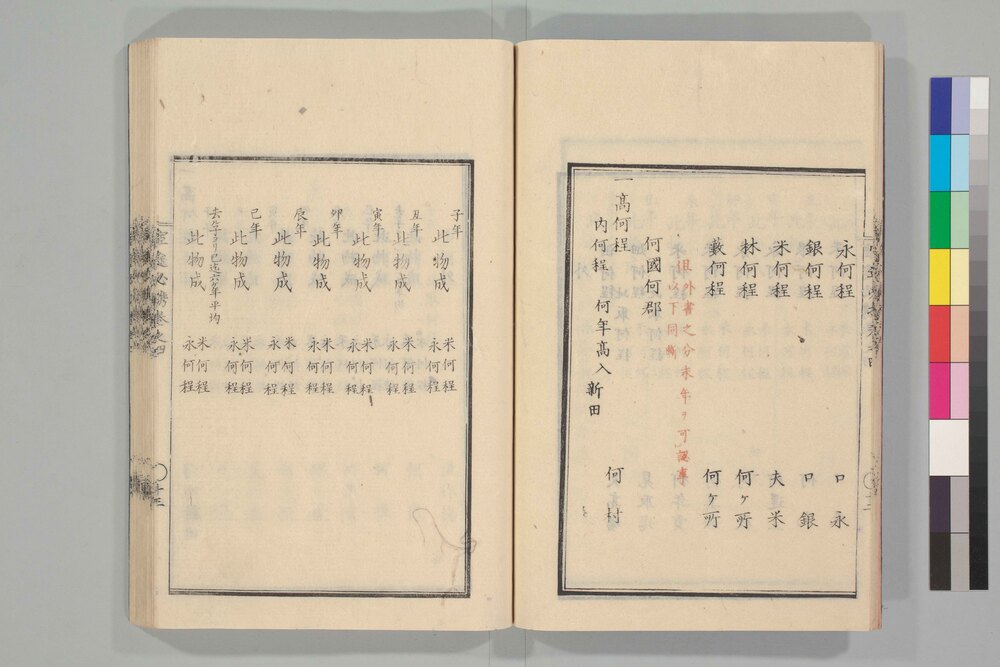 永何程 口永
銀何程 口銀
米何程 夫米
林何程 何ケ所
藪何程 何ケ所
但外書之分末年ヲ可認事
以下同断
何國何郡
一高何程 何村
内何程 何年高入新田
子年 此物成 米何程 永何程
丑年 此物成 米何程 永何程
寅年 此物成 米何程 永何程
卯年 此物成 米何程 永何程
辰年 此物成 米何程 永何程
巳年 此物成 米何程 永何程
去ル子ヨリ巳迄六ケ年平均
此物成 米何程 永何程